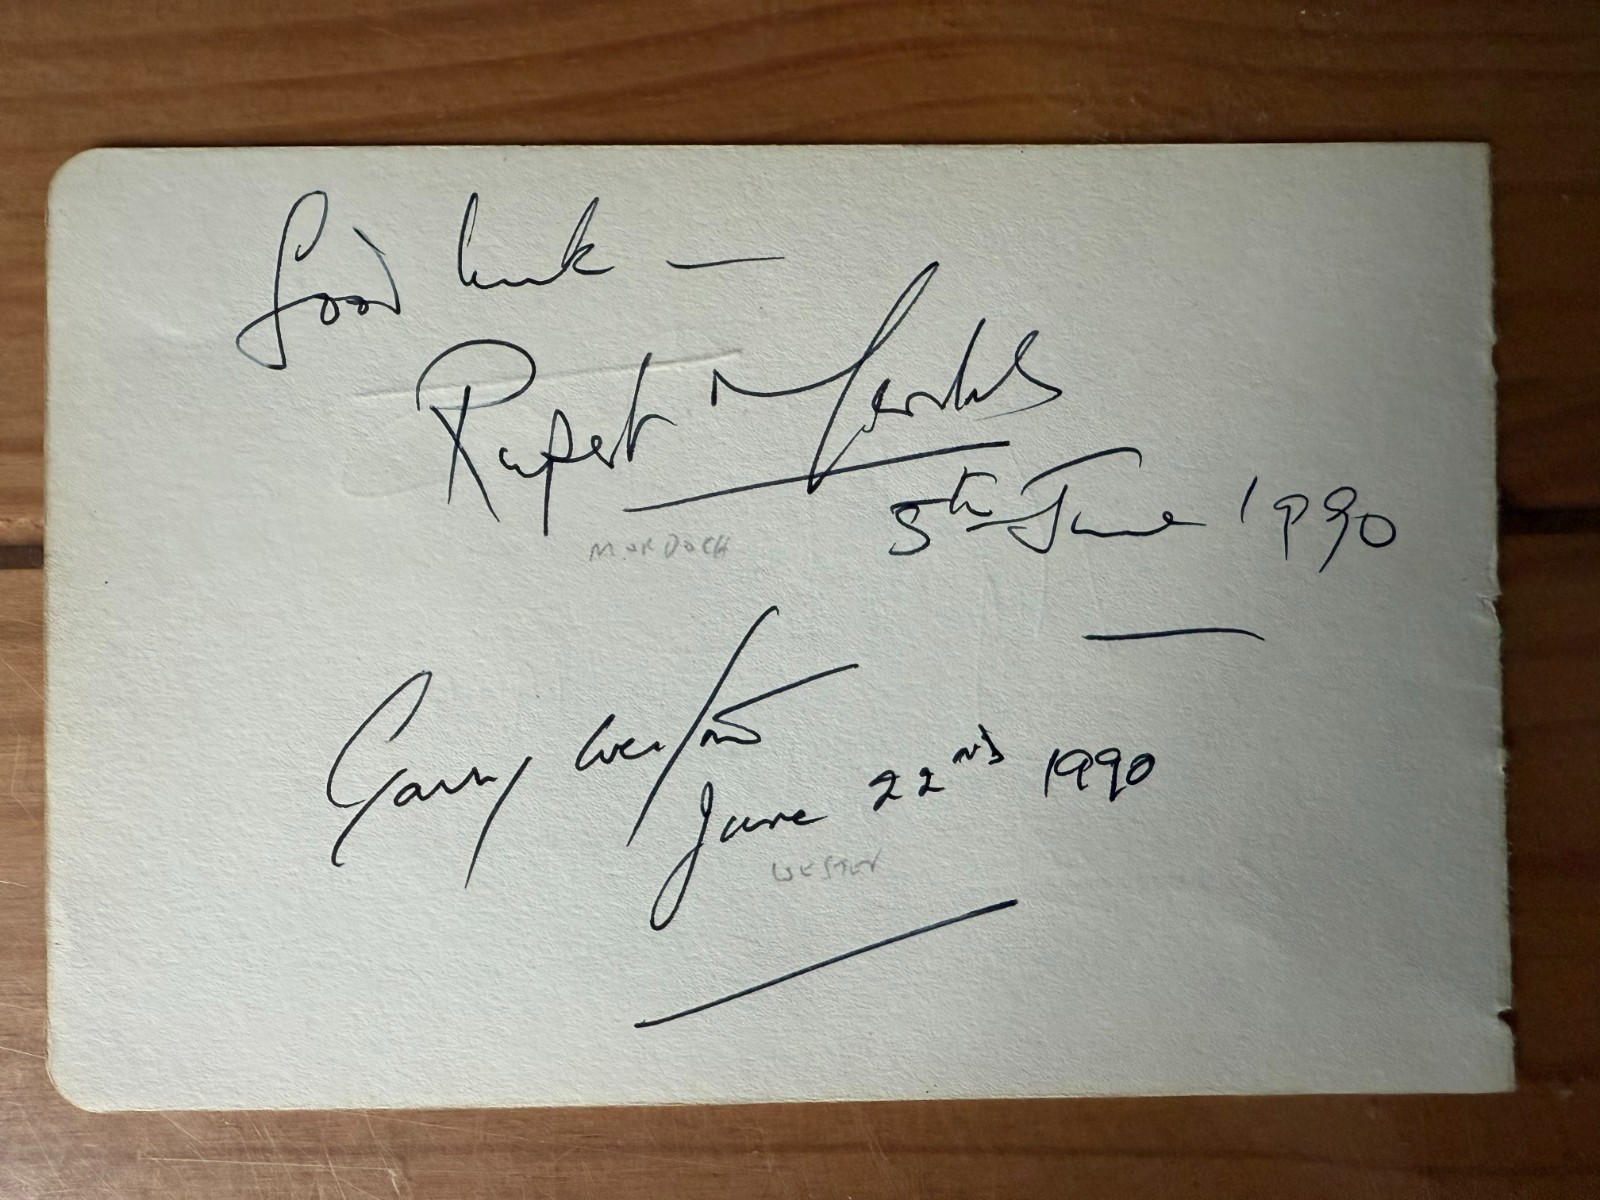 Good luck —
Rupert Murdoch
5th June 1990
MORDOCH
Garry Weston
June 22nd 1990
WESTEN